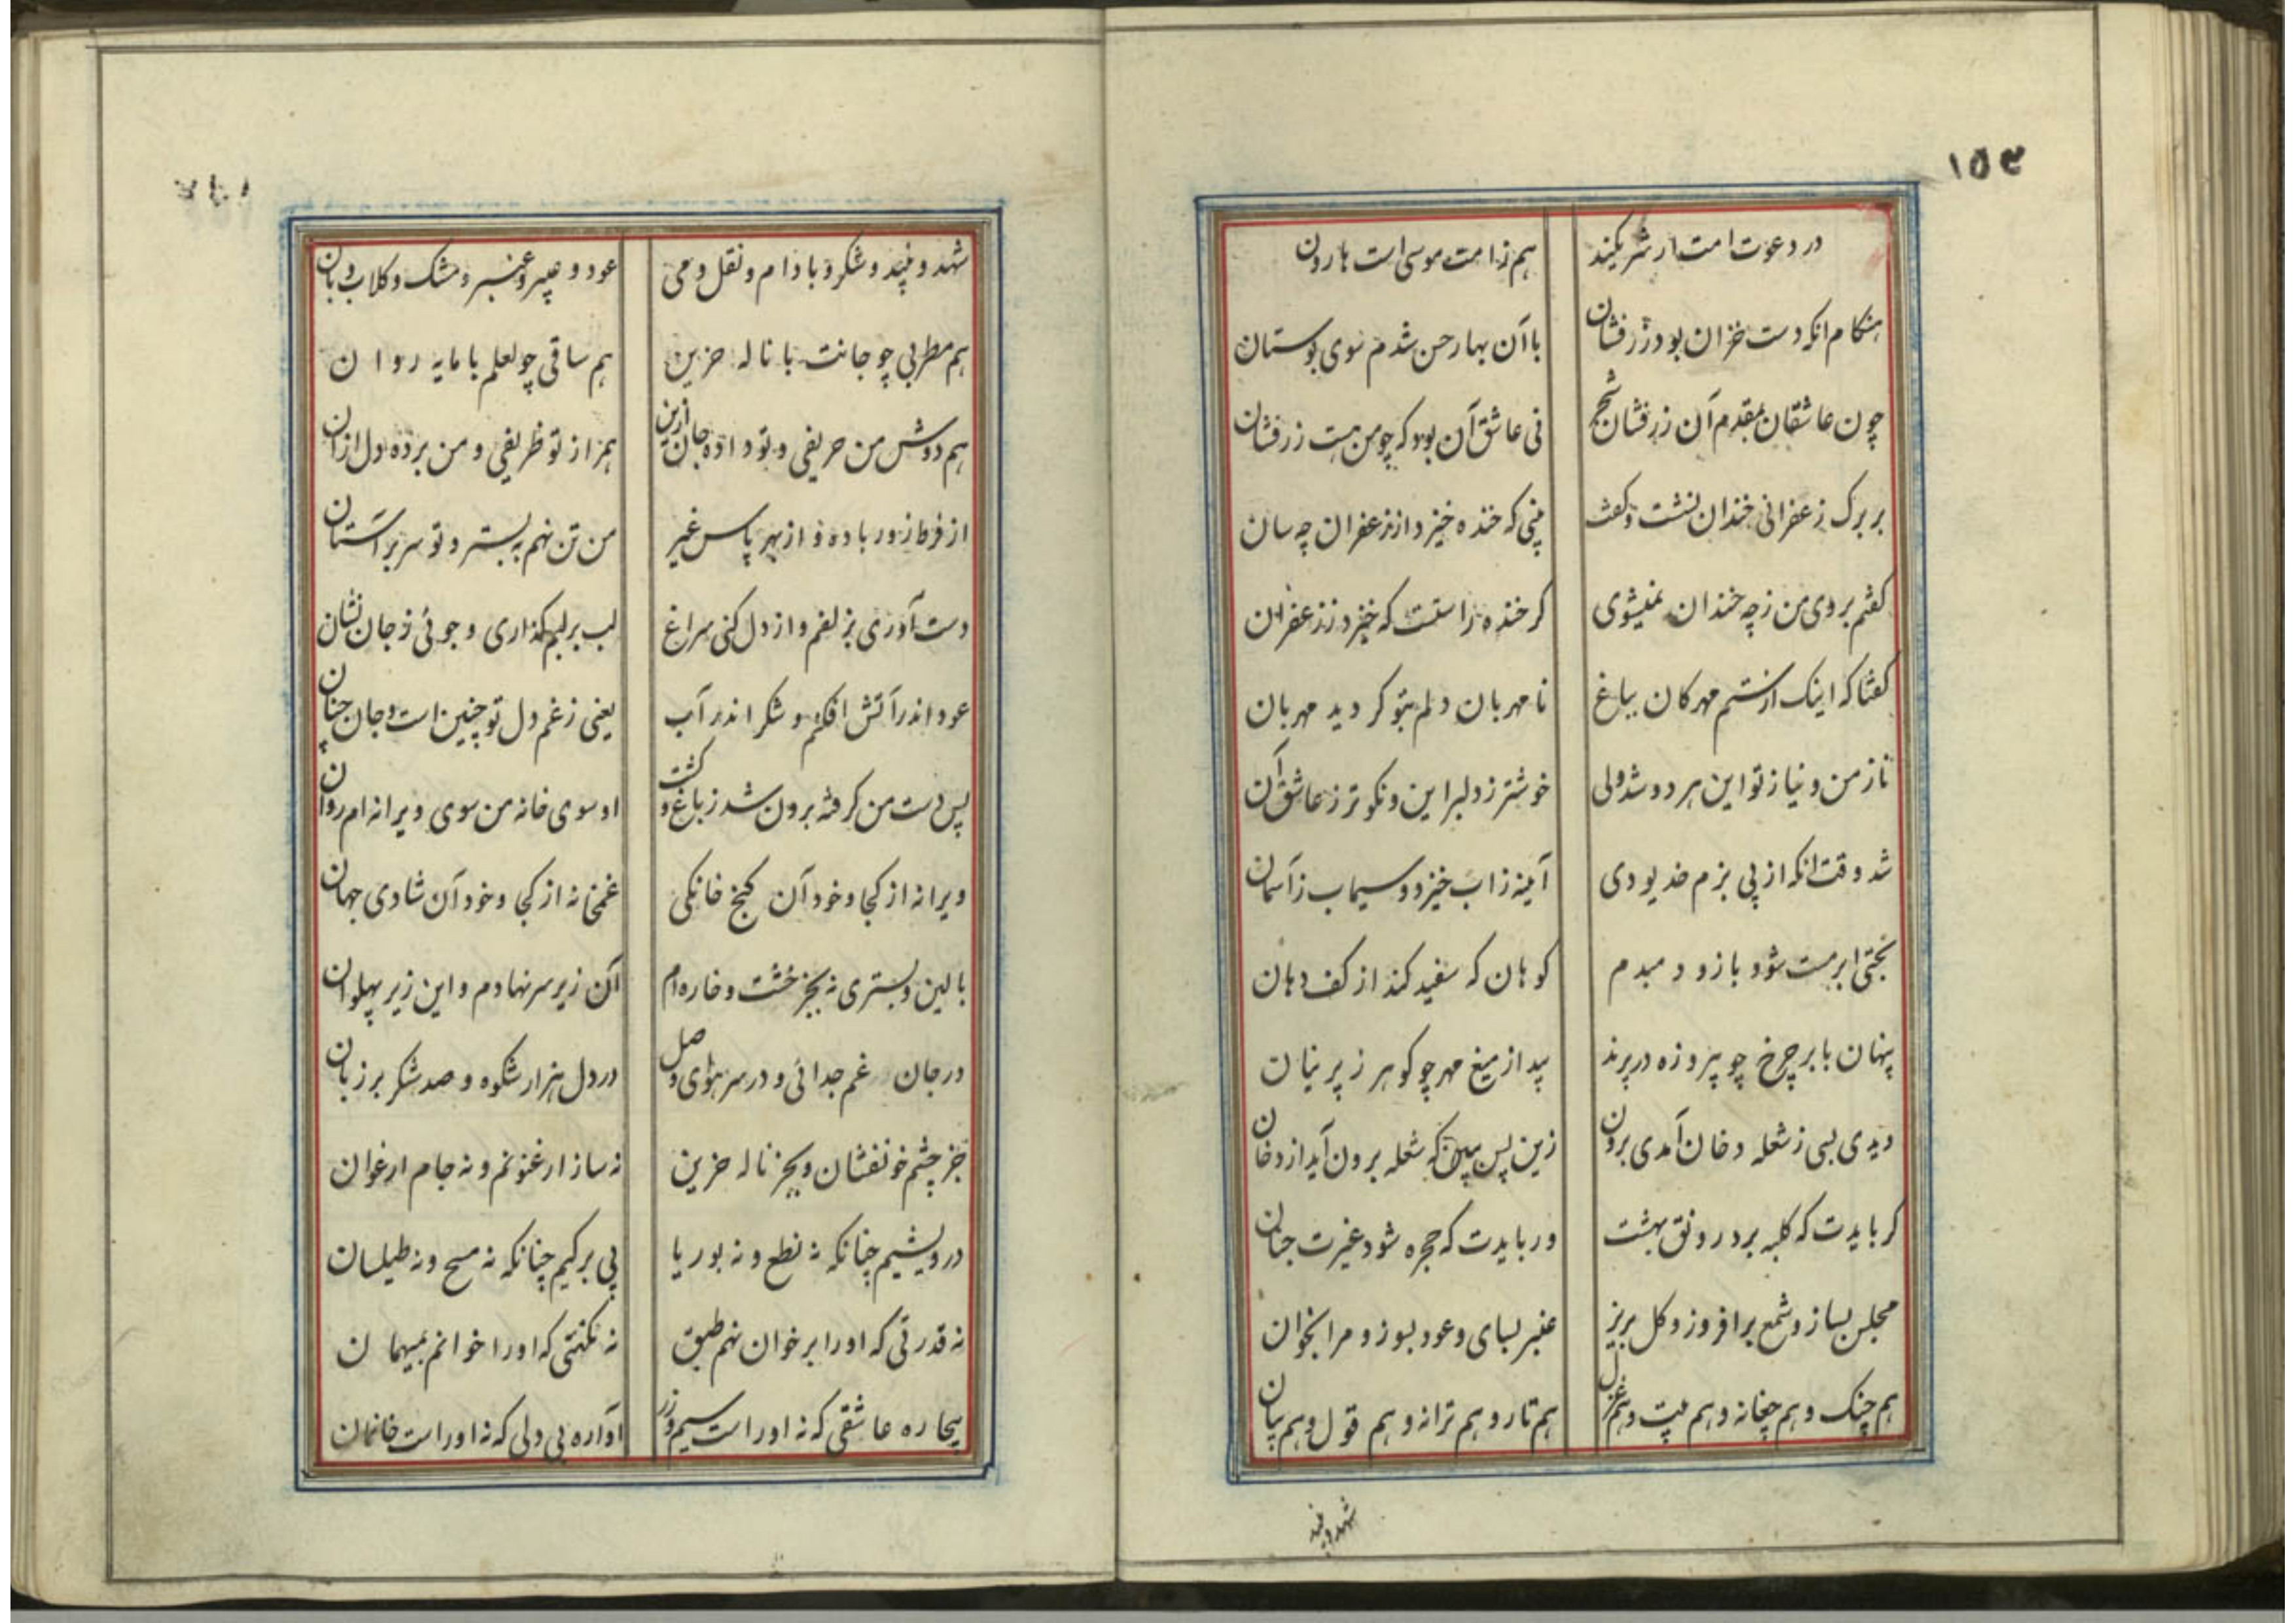 ۱۵۳
در دعوت امت ار شریکند هم ز امت موسی است هارون
هنگام انکه دست خزان بود زرفشان با آن بهار حسن شدم سوی بوستان
چون عاشقان بمقدم آن زرفشان شجر نی عاشق آن بود که چو من هست زرفشان
بر برک زعفرانی خندان نشست و کفت بینی که خنده خیزد از زعفران چه سان
کفتم بروی من ز چه خندان نمیشوی کر خنده راستست که خیزد ز زعفران
کفتا که اینک از ستم مهرکان بباغ نامهربان دلم بتو کردید مهربان
ناز من و نیاز تو این هر دو شد ولی خوشتر ز دلبر این و نکوتر ز عاشق آن
شد وقت انکه از پی بزم خدیو دی آینه ز اب خیزد و سیماب ز آسمان
بختی ابر مست شود باز و دمبدم کوهان که سفید کند از کف دهان
پنهان بابر چرخ چو پیروزه در پرند پیدا ز میغ مهر چو کوهر ز پرنیان
دیدی بسی ز شعله دخان آمدی برون زین پس ببین که شعله برون آید از دخان
کر بایدت که کلبه برد رونق بهشت ور بایدت که حجره شود غیرت جنان
مجلس بساز و شمع برافروز و کل بریز عنبر بسای و عود بسوز و مرا بخوان
هم چنک و هم چغانه و هم بیت و هم غزل هم تار و هم ترانه و هم قول و هم بیان
شهد و پند
شهد و پنید و شکر و بادام و نقل و می عود و عبیر و عنبر و مشک و کلاب و بان
هم مطربی چو جانت با ناله حزین هم ساقی چو لعلم با مایه روان
هم دوش من حریفی و تو داده جان ازین همراز تو ظریفی و من برده دل ازان
از فرط زور باده و از بهر پاس غیر من تن نهم به بستر و تو سر بر آستان
دست آوری بزلفم و از دل کنی سراغ لب بر لبم کذاری و جوئی ز جان نشان
عود اندر آتش افکنم و شکر اندر آب یعنی ز غم دل تو چنین است و جان چنان
پس دست من کرفته برون شد ز باغ و کشت او سوی خانه من سوی ویرانه ام روان
ویرانه از کجا و خود آن کنج خانکی غمخانه از کجا و خود آن شادی جهان
بالین و بستری نه بجز خشت و خاره ام آن زیر سر نهادم و این زیر پهلوان
در جان غم جدائی و در سر هوای وصل در دل هزار شکوه و صد شکر بر زبان
جز چشم خونفشان و بجز ناله حزین نه ساز ارغنونم و نه جام ارغوان
درویشیم چنانکه نه نطع و نه بوریا بی برکیم چنانکه نه مسح و نه طیلسان
نه قدرتی که او را بر خوان نهم طبق نه مکنتی که او را خوانم بمیهمان
بیچاره عاشقی که نه او راست سیم و زر آواره بی دلی که نه او راست خانمان